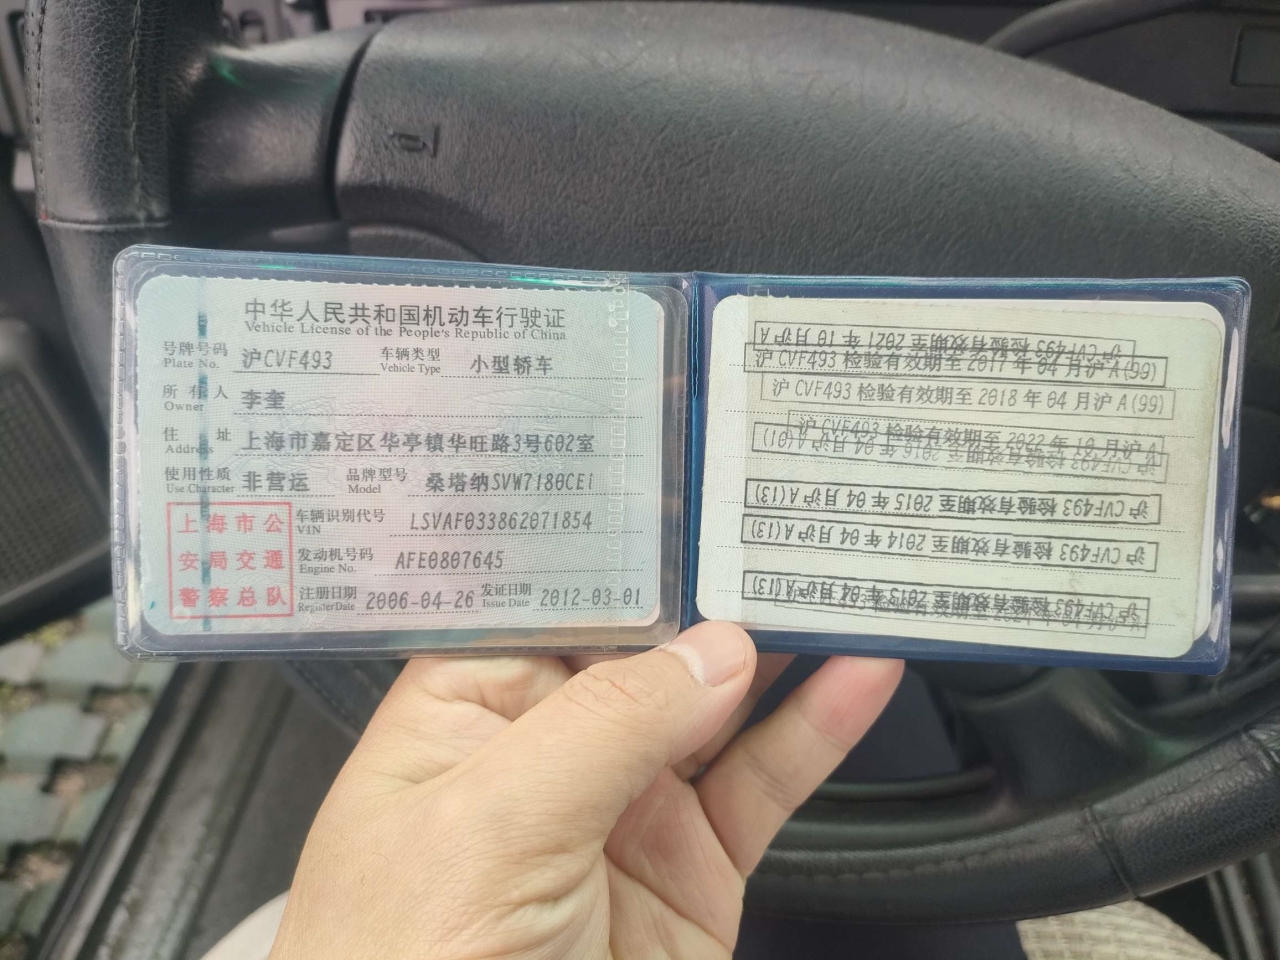 中华人民共和国机动车行驶证
Vehicle License of the People's Republic of China
号牌号码 沪CVF493 车辆类型 小型轿车
Plate No. Vehicle Type
所有人 李奎
Owner
住址 上海市嘉定区华亭镇华旺路3号602室
Address
使用性质 非营运 品牌型号 桑塔纳SVW7180CEi
Use Character Model
上海市公
安局交通
警察总队
车辆识别代号 LSVAF033862071854
VIN
发动机号码 AFE0807645
Engine No.
注册日期 2006-04-26 发证日期 2012-03-01
Register Date Issue Date
沪CVF493 检验有效期至 2021 年 10 月沪A
沪CVF493 检验有效期至 2017 年 04 月沪A(99)
沪CVF493 检验有效期至 2018 年 04 月沪A(99)
沪CVF493 检验有效期至 2022 年 10 月沪A
沪CVF493 检验有效期至 2016 年 04 月沪A(01)
沪CVF493 检验有效期至 2015 年 04 月沪A(13)
沪CVF493 检验有效期至 2014 年 04 月沪A(13)
沪CVF493 检验有效期至 2013 年 04 月沪A(13)